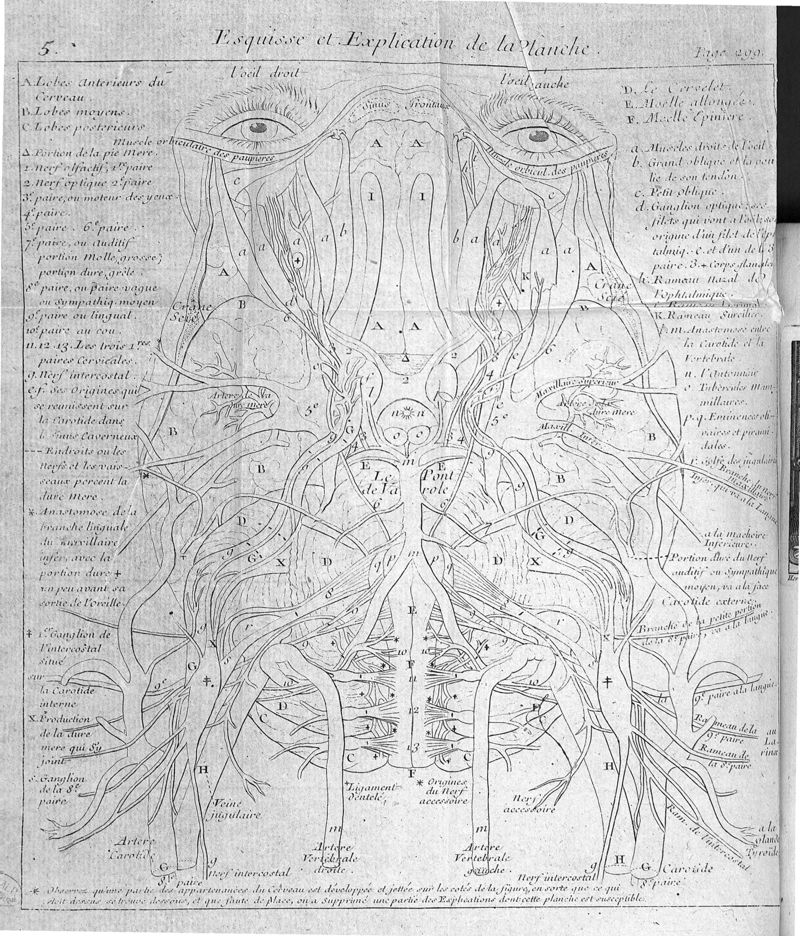 5.
Esquisse et Explication de la Planche.
Page 299.
L'oeil droit
L'oeil auche
Sinus Frontaux
A. Lobes Anterieurs du
Cerveau.
B. Lobes moyens.
C. Lobes posterieurs
Muscle orbiculaire des paupieres
Muscle orbicul. des paupieres
Δ. Portion de la pie Mere.
1. Nerf olfactif, 1re paire
2 Nerf optique 2e paire
3e paire, ou moteur des yeux
4e paire.
5e paire. 6e paire.
7e paire, ou auditif
portion Molle, grosse;
portion dure, grêle.
8e paire, ou paire vague
ou Sympathiq. moyen
9e paire ou lingual.
10e paire au cou.
11. 12. 13. Les trois 1res
paires Cervicales.
g. Nerf intercostal.
e.f. Ses Origines qui
se reunissent sur
la Carotide dans
le Sinus Caverneux
--- Endroits ou les
Nerfs et les vais-
seaux percent la
dure Mere.
* Anastomose de la
branche linguale
du Maxillaire
infer. avec la
portion dure +
un peu avant sa
sortie de l'oreille.
‡ 1er Ganglion de
l'intercostal
situé
sur
la Carotide
interne
X. Production
de la dure
mere qui s'y
joint
s. Ganglion
de la 8e
paire
D. Le Cervelet
E. Moëlle allongée.
F. Moëlle Epiniere.
a. Muscles droits de l'oeil
b. Grand oblique et la pou
lie de son tendon.
c. Petit oblique.
d. Ganglion optique, ses
filets qui vont a l'oeil, son
origine d'un filet de l'oph
talmiq. e. et d'un de la 3e
paire. 3. + Corps glandul
h. Rameau Nazal de
l'Ophtalmique.
K. Rameau Surcilier
m. Anastomose entre
la Carotide et la
Vertebrale.
n. l'Antonnoir
o Tubercules Mam-
millaires.
p. q. Eminences oli-
vaires et piram-
dales.
r. Golfe des jugulaires
Crâne
Scié
Crâne
Scié
Artere de la
dure mere
Maxillaire Superieur
Artere de la
dure mere
Maxill.
Infer.
Le Pont
de Va role
a la Machoire
Inferieure.
Portion dure du Nerf
auditif ou Sympathique
moyen, va a la face
Carotide externe.
Branche de la petite portion
de la 8e paire, va a la langue.
9e paire a la langue
Rameau de la
9e paire
Rameau de
la 8e paire
au
La-
rinx
Ram. de l'intercostal
a la
glande
Tyroïde
Veine
jugulaire
Ligament
dentelé
* Origines
du Nerf
accessoire
Nerf
accessoire
Artere
Carotide
8e paire
Nerf intercostal
Artere
Vertebrale
droite.
Artere
Vertebrale
gauche.
Nerf intercostal
Carotide
8e paire
* Observez qu'une partie des appartenances du Cerveau est développée et jettée sur les cotés de la figure, en sorte que ce qui
étoit dessus, se trouve dessous, et que faute de place, on a Supprimé une partie des Explications dont cette planche est susceptible.